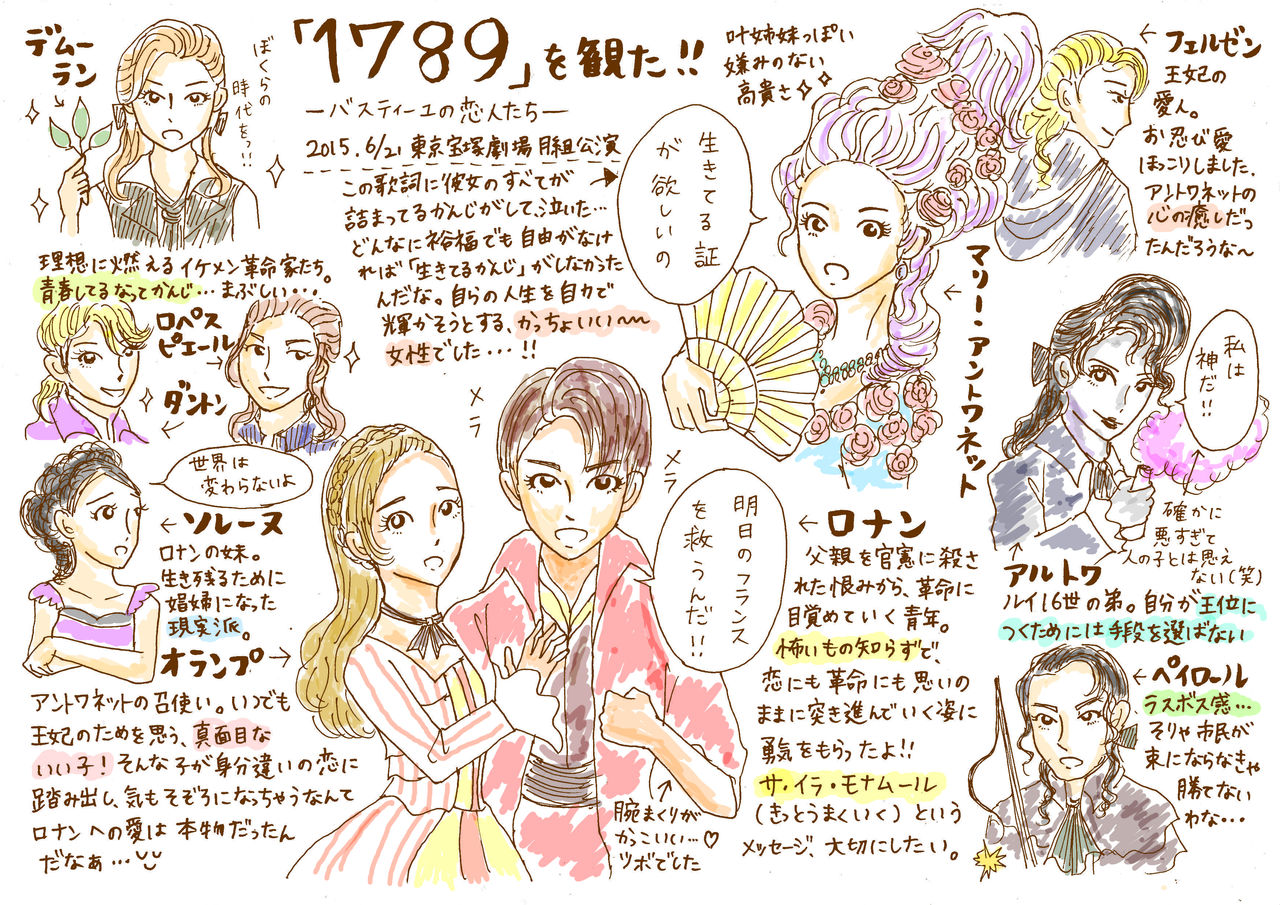 「1789」を観た!!
ーバスティーユの恋人たちー
2015.6/21 東京宝塚劇場月組公演
デムー
ラン
ぼくらの
時代をっ!!
理想に燃えるイケメン革命家たち。
青春してるなってかんじ…まぶしい・・・
ロペス
ピエール→
ダントン
この歌詞に彼女のすべてが
詰まってるかんじがして、泣いた…
どんなに裕福でも自由がなけ
れば「生きてるかんじ」がしなかった
んだな。自らの人生を自力で
輝かそうとする、かっちょいい〜〜
女性でした・・・!!
生きてる証
が欲しいの
叶姉妹っぽい
嫌みのない
高貴さ
←マリー・アントワネット
←フェルゼン
王妃の
愛人。
お忍び愛
ほっこりしました。
アントワネットの
心の癒しだっ
たんだろうな〜
私は
神だ!!
確かに
悪すぎて
人の子とは思え
ない(笑)
アルトワ
ルイ16世の弟。自分が王位に
つくためには手段を選ばない
←ペイロール
ラスボス感…
そりゃ市民が
束にならなきゃ
勝てない
わな・・・
世界は
変わらないよ
←ソレーヌ
ロナンの妹。
生き残るために
娼婦になった
現実派。
オランプ→
アントワネットの召使い。いつでも
王妃のためを思う、真面目な
いい子!そんな子が身分違いの恋に
踏み出し、気もそぞろになっちゃうなんて
ロナンへの愛は本物だったん
だなぁ…
メラ
メラ
明日のフランス
を救うんだ!!
←ロナン
父親を官憲に殺さ
れた恨みから、革命に
目覚めていく青年。
怖いもの知らずで、
恋にも革命にも思いの
ままに突き進んでいく姿に
勇気をもらったよ!!
サ・イラ・モナムール
(きっとうまくいく)という
メッセージ、大切にしたい。
腕まくりが
かっこいい…♡
ツボでした